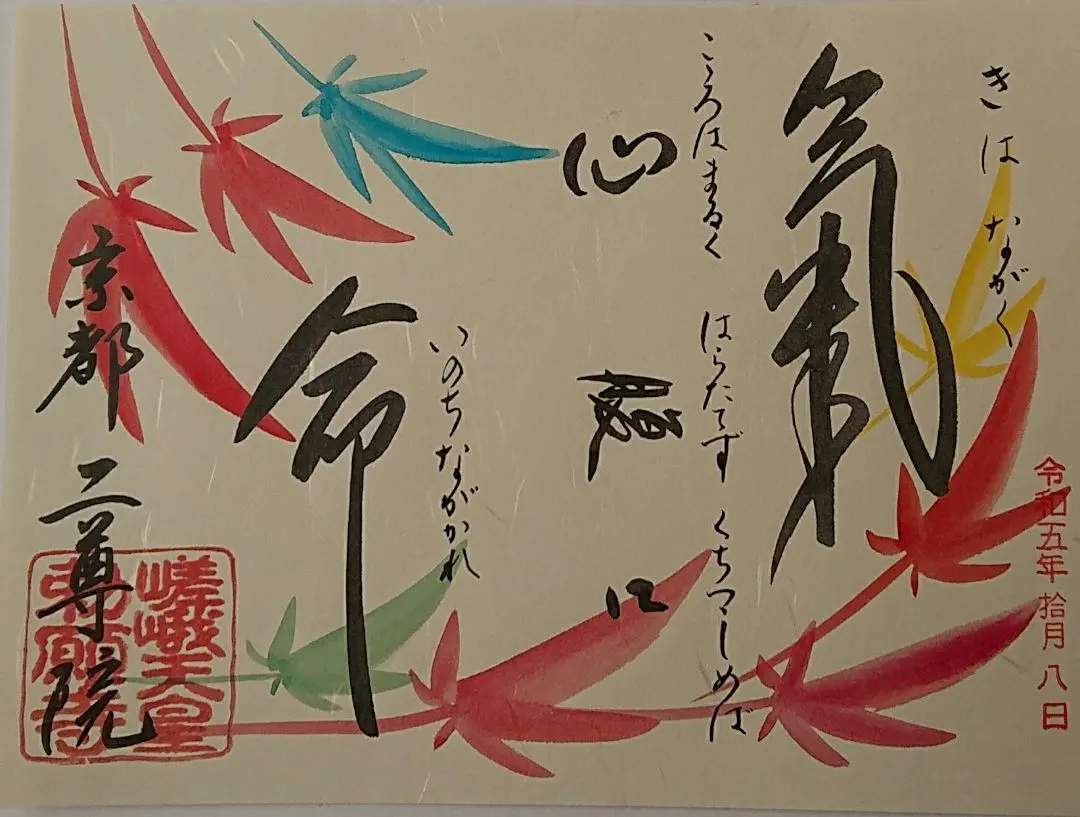 令和五年 拾月 八日
きは ながく
氣
こゝろはまるく はらたてず くちつゝしめば
心 腹 口
いのちながかれ
命
京都 二尊院
嵯峨天皇
勅願寺